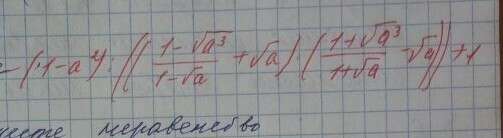 - (1-a²) : ((\frac{1-√a³}{1-√a} + √a) · (\frac{1+√a³}{1+√a} - √a)) + 1
неравенство